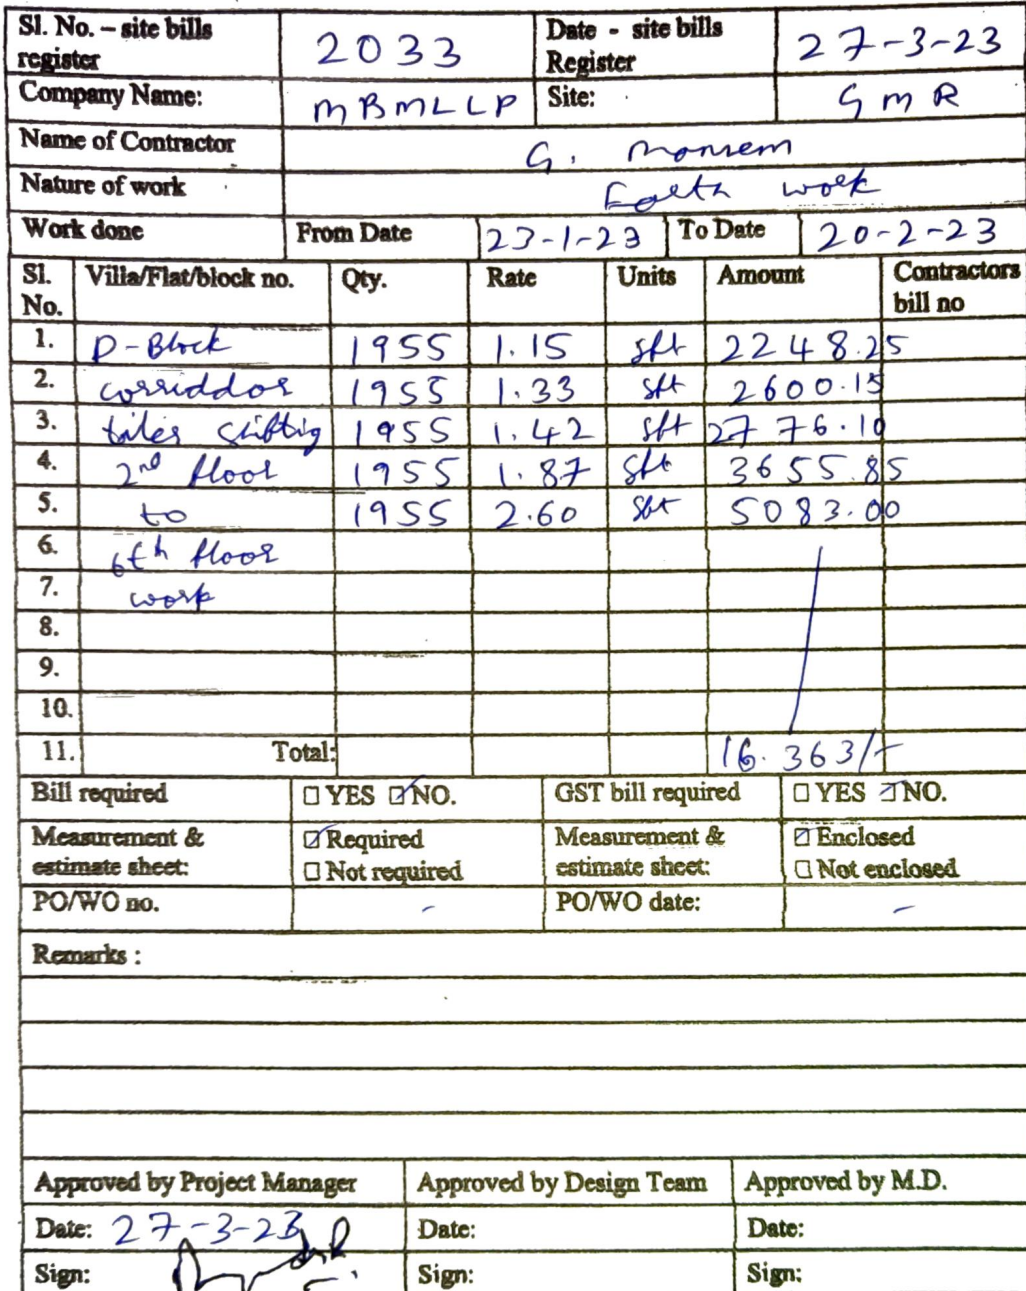 Sl. No. – site bills register 2033 Date - site bills Register 27-3-23
Company Name: MBMLLP Site: GMR
Name of Contractor G.
Nature of work Earth work
Work done From Date 23-1-23 To Date 20-2-23
Sl. No. Villa/Flat/block no. Qty. Rate Units Amount Contractors bill no
1. D-Block 1955 1.15 sft 2248.25
2. corriddor 1955 1.33 sft 2600.15
3. tiles shifting 1955 1.42 sft 2776.10
4. 2nd floor 1955 1.87 sft 3655.85
5. to 1955 2.60 sft 5083.00
6. 6th floor
7. work
8.
9.
10.
11. Total: 16.363/-
Bill required ☐ YES ☑ NO. GST bill required ☐ YES ☑ NO.
Measurement & estimate sheet: ☑ Required ☐ Not required Measurement & estimate sheet: ☑ Enclosed ☐ Not enclosed
PO/WO no. - PO/WO date: -
Remarks :
Approved by Project Manager Approved by Design Team Approved by M.D.
Date: 27-3-23 Date: Date:
Sign: Sign: Sign: